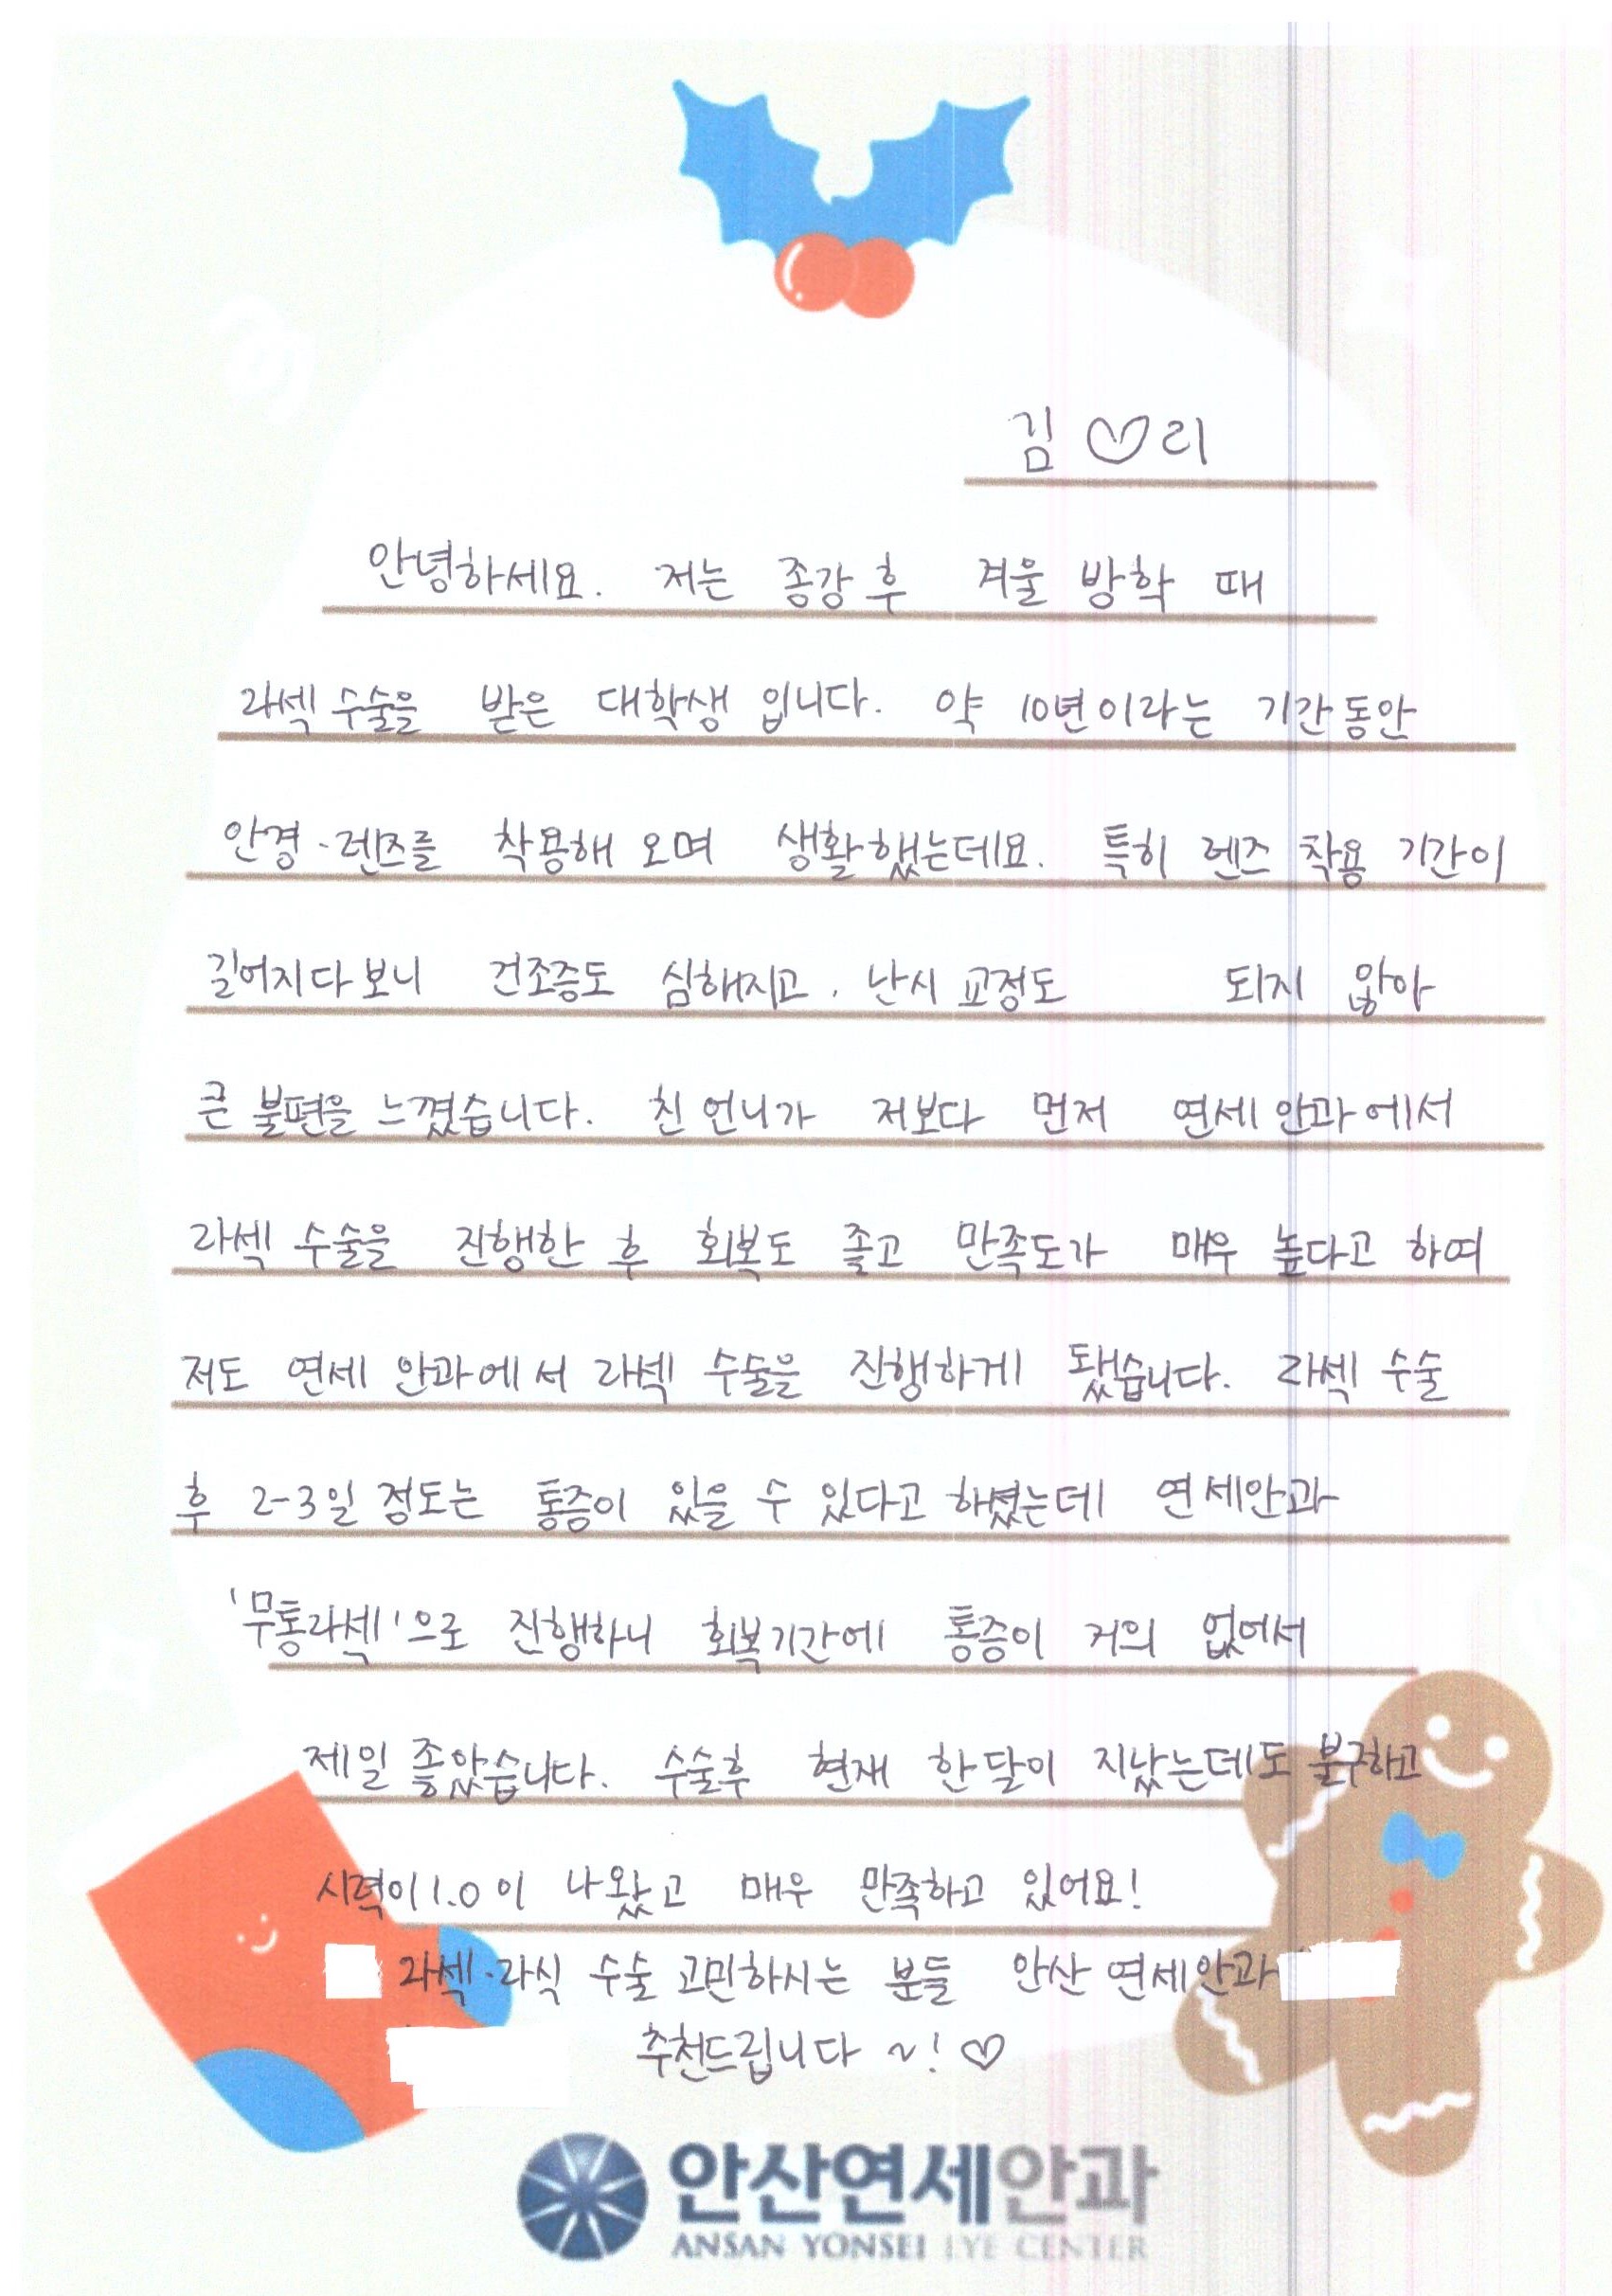 김 ♡리
안녕하세요. 저는 종강 후 겨울 방학 때
라섹 수술을 받은 대학생 입니다. 약 10년이라는 기간동안
안경·렌즈를 착용해 오며 생활했는데요. 특히 렌즈 착용 기간이
길어지다보니 건조증도 심해지고, 난시 교정도 되지 않아
큰 불편을 느꼈습니다. 친 언니가 저보다 먼저 연세 안과에서
라섹 수술을 진행한 후 회복도 좋고 만족도가 매우 높다고 하여
저도 연세 안과에서 라섹 수술을 진행하게 됐습니다. 라섹 수술
후 2-3일 정도는 통증이 있을 수 있다고 하셨는데 연세안과
'무통라섹'으로 진행하니 회복기간에 통증이 거의 없어서
제일 좋았습니다. 수술후 현재 한달이 지났는데도 불구하고
시력이 1.0이 나왔고 매우 만족하고 있어요!
라섹·라식 수술 고민하시는 분들 안산 연세안과
추천드립니다 ~! ♡
안산연세안과
ANSAN YONSEI EYE CENTER